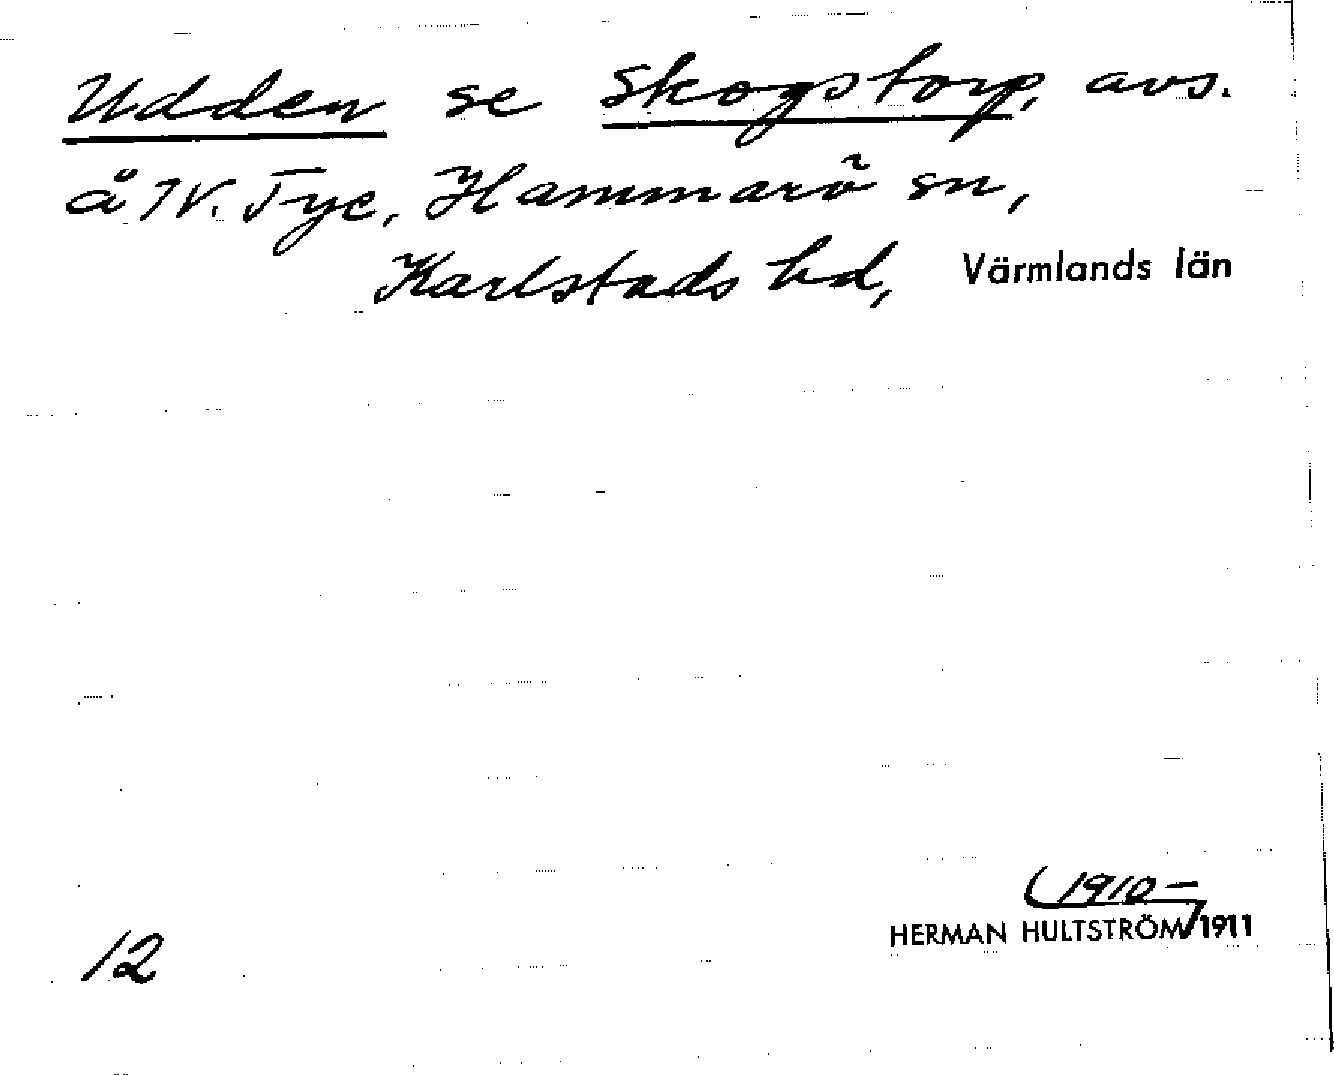 Udden se Skogstorp, avs.
å N. Tye, Hammarö sn,
Karlstads hd, Värmlands län
(1910-
HERMAN HULTSTRÖM 1911
12